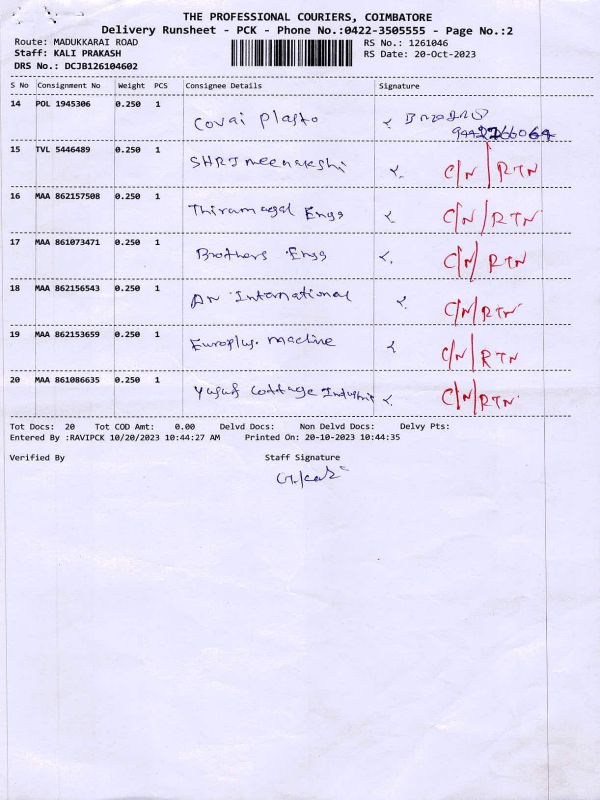 THE PROFESSIONAL COURIERS, COIMBATORE
Delivery Runsheet - PCK - Phone No.:0422-3505555 - Page No.:2
Route: MADUKKARAI ROAD RS No.: 1261046
Staff: KALI PRAKASH RS Date: 20-Oct-2023
DRS No.: DCJB126104602
S No Consignment No Weight PCS Consignee Details Signature
14 POL 1945306 0.250 1 Covai Plasto
15 TVL 5446489 0.250 1 SHRI meenakshi C/N/RTN
16 MAA 862157508 0.250 1 Thiramagal Engg C/N/RTN
17 MAA 861073471 0.250 1 Brothers Engg C/N/RTN
18 MAA 862156543 0.250 1 An International C/N/RTN
19 MAA 862153659 0.250 1 Europlus. machine C/N/RTN
20 MAA 861086635 0.250 1 Yusuf Cottage Industri C/N/RTN
Tot Docs: 20 Tot COD Amt: 0.00 Delvd Docs: Non Delvd Docs: Delvy Pts:
Entered By :RAVIPCK 10/20/2023 10:44:27 AM Printed On: 20-10-2023 10:44:35
Verified By Staff Signature